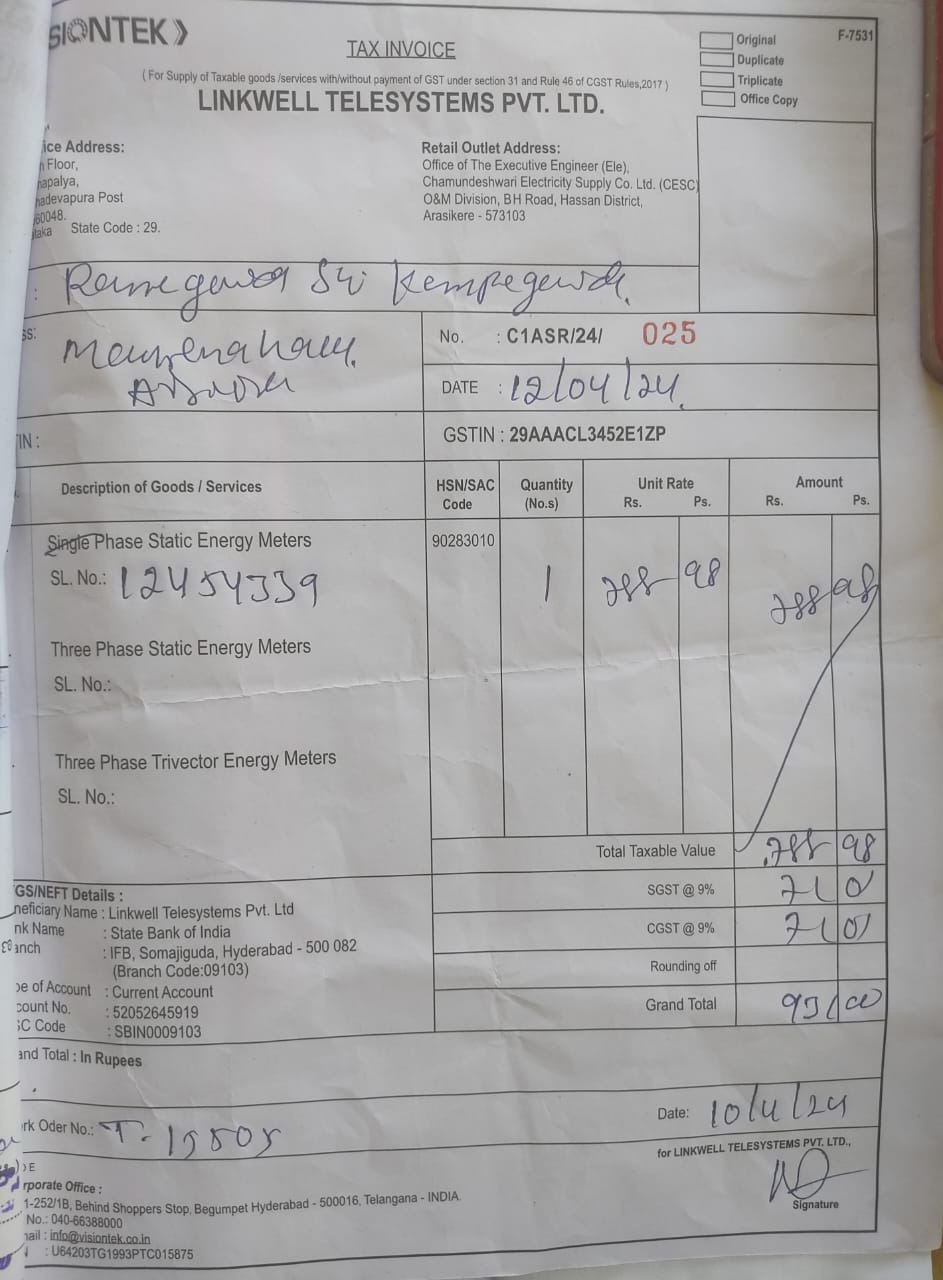 SIONTEK
TAX INVOICE
( For Supply of Taxable goods /services with/without payment of GST under section 31 and Rule 46 of CGST Rules,2017 )
LINKWELL TELESYSTEMS PVT. LTD.
Original
Duplicate
Triplicate
Office Copy
F-7531
ice Address:
Floor,
apalya,
adevapura Post
60048.
taka State Code : 29.
Retail Outlet Address:
Office of The Executive Engineer (Ele),
Chamundeshwari Electricity Supply Co. Ltd. (CESC)
O&M Division, BH Road, Hassan District,
Arasikere - 573103
: Ramegowda S/o Kempegowda.
ss:
No. : C1ASR/24/ 025
DATE : 12/04/24.
TIN :
GSTIN : 29AAACL3452E1ZP
Description of Goods / Services HSN/SAC Code Quantity (No.s) Unit Rate Rs. Ps. Amount Rs. Ps.
Single Phase Static Energy Meters 90283010
SL. No.: 12454339 1 788 98 788 98
Three Phase Static Energy Meters
SL. No.:
Three Phase Trivector Energy Meters
SL. No.:
Total Taxable Value 788 98
SGST @ 9% 71 01
CGST @ 9% 71 01
Rounding off
Grand Total 931 00
GS/NEFT Details :
neficiary Name : Linkwell Telesystems Pvt. Ltd
nk Name : State Bank of India
anch : IFB, Somajiguda, Hyderabad - 500 082
(Branch Code:09103)
pe of Account : Current Account
count No. : 52052645919
SC Code : SBIN0009103
and Total : In Rupees
rk Oder No.: T-19505
Date: 10/4/24
for LINKWELL TELESYSTEMS PVT. LTD.,
Signature
rporate Office :
1-252/1B, Behind Shoppers Stop, Begumpet Hyderabad - 500016, Telangana - INDIA.
No.: 040-66388000
ail : info@visiontek.co.in
: U64203TG1993PTC015875